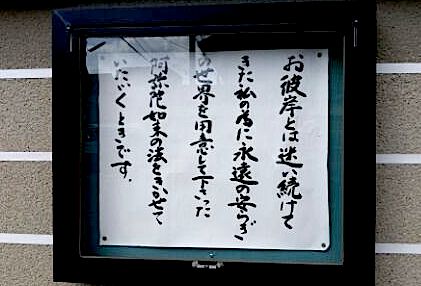 お彼岸とは迷い続けて
きた私の為に永遠の安らぎ
の世界を用意して下さった
阿弥陀如来の法をきかせて
いただくときです。